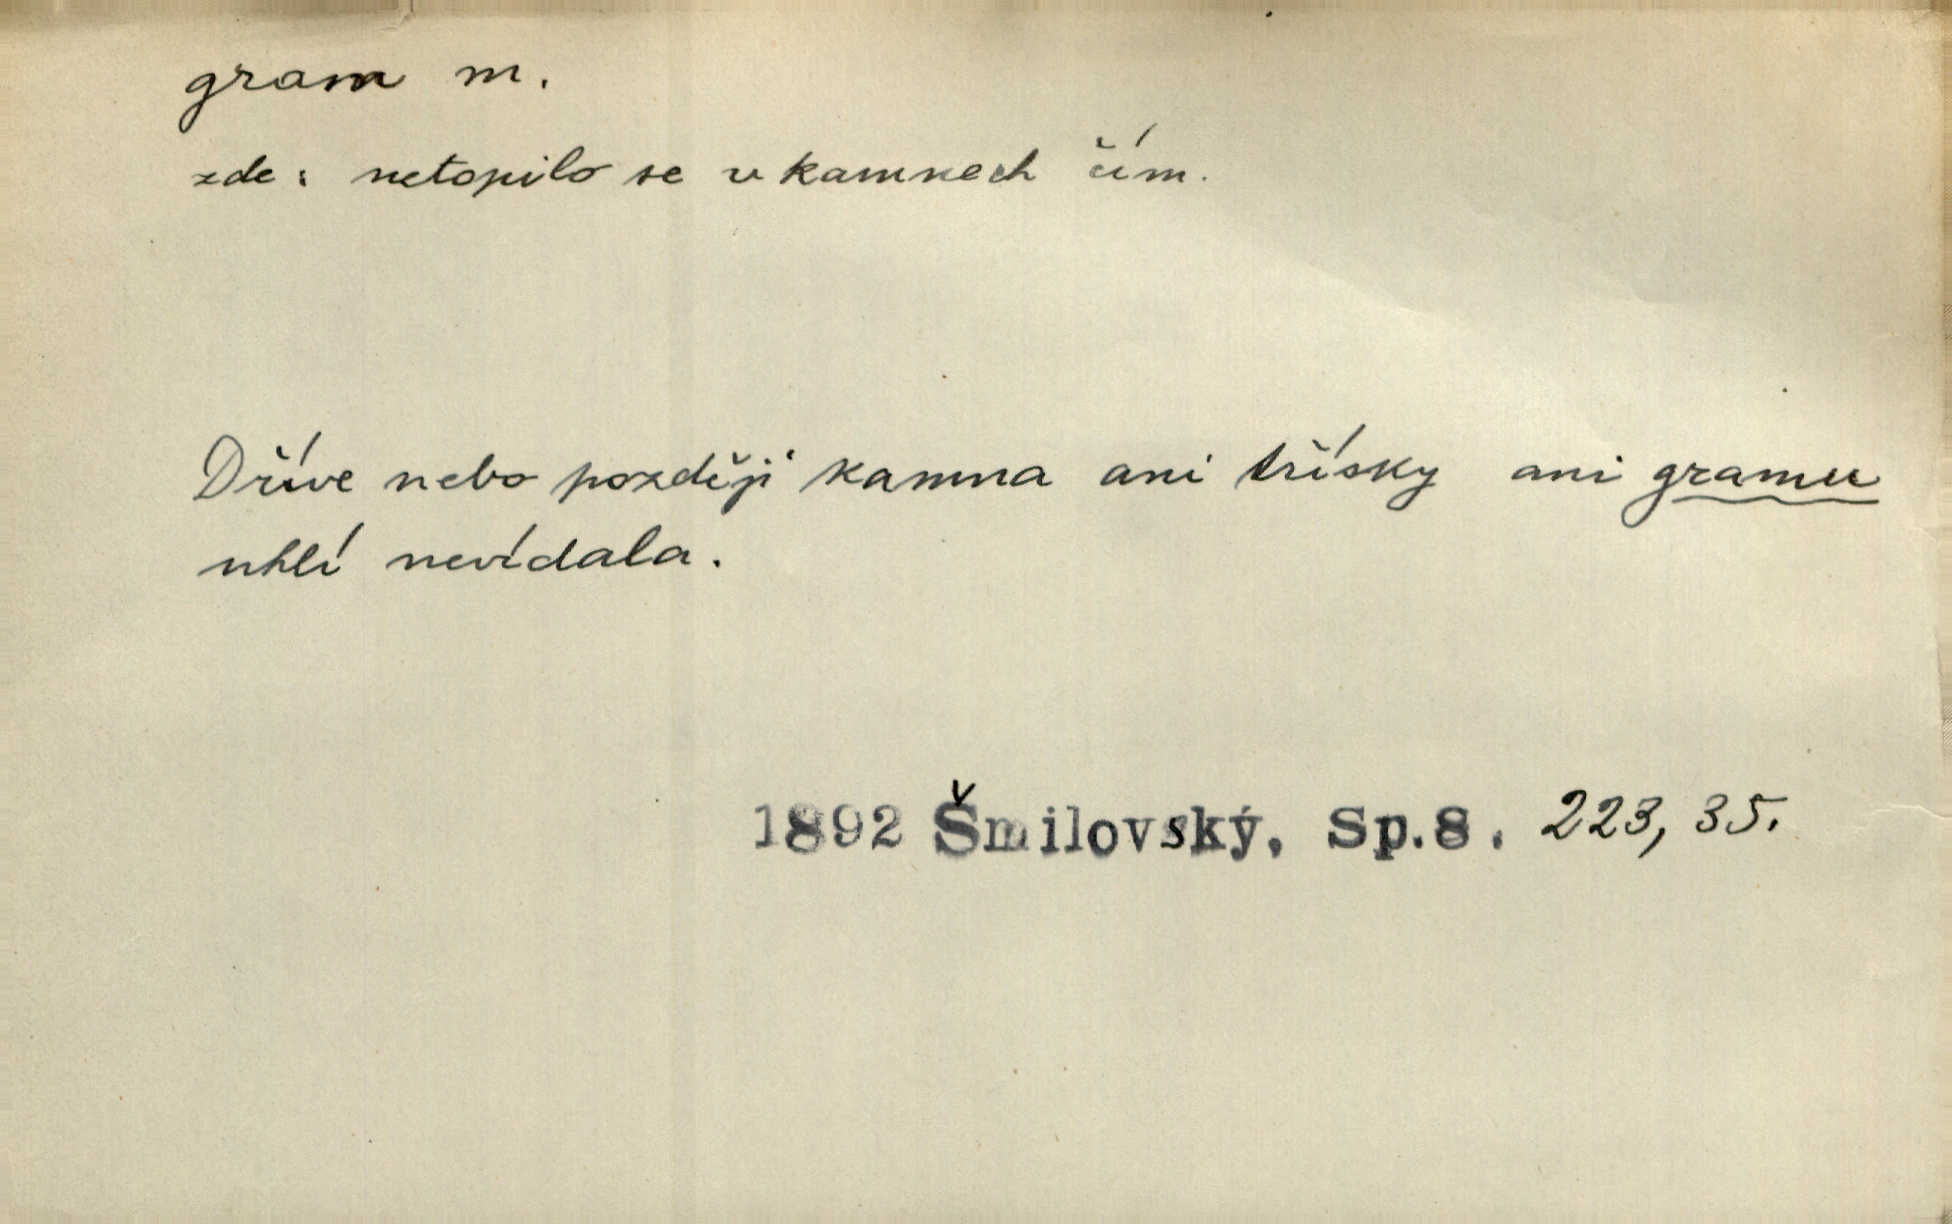 gram m.
zde: netopilo se v kamnech čím.
Dříve nebo později kamna ani třísky ani gramu
uhlí nevídala.
1892 Šmilovský, Sp.8. 223, 35.